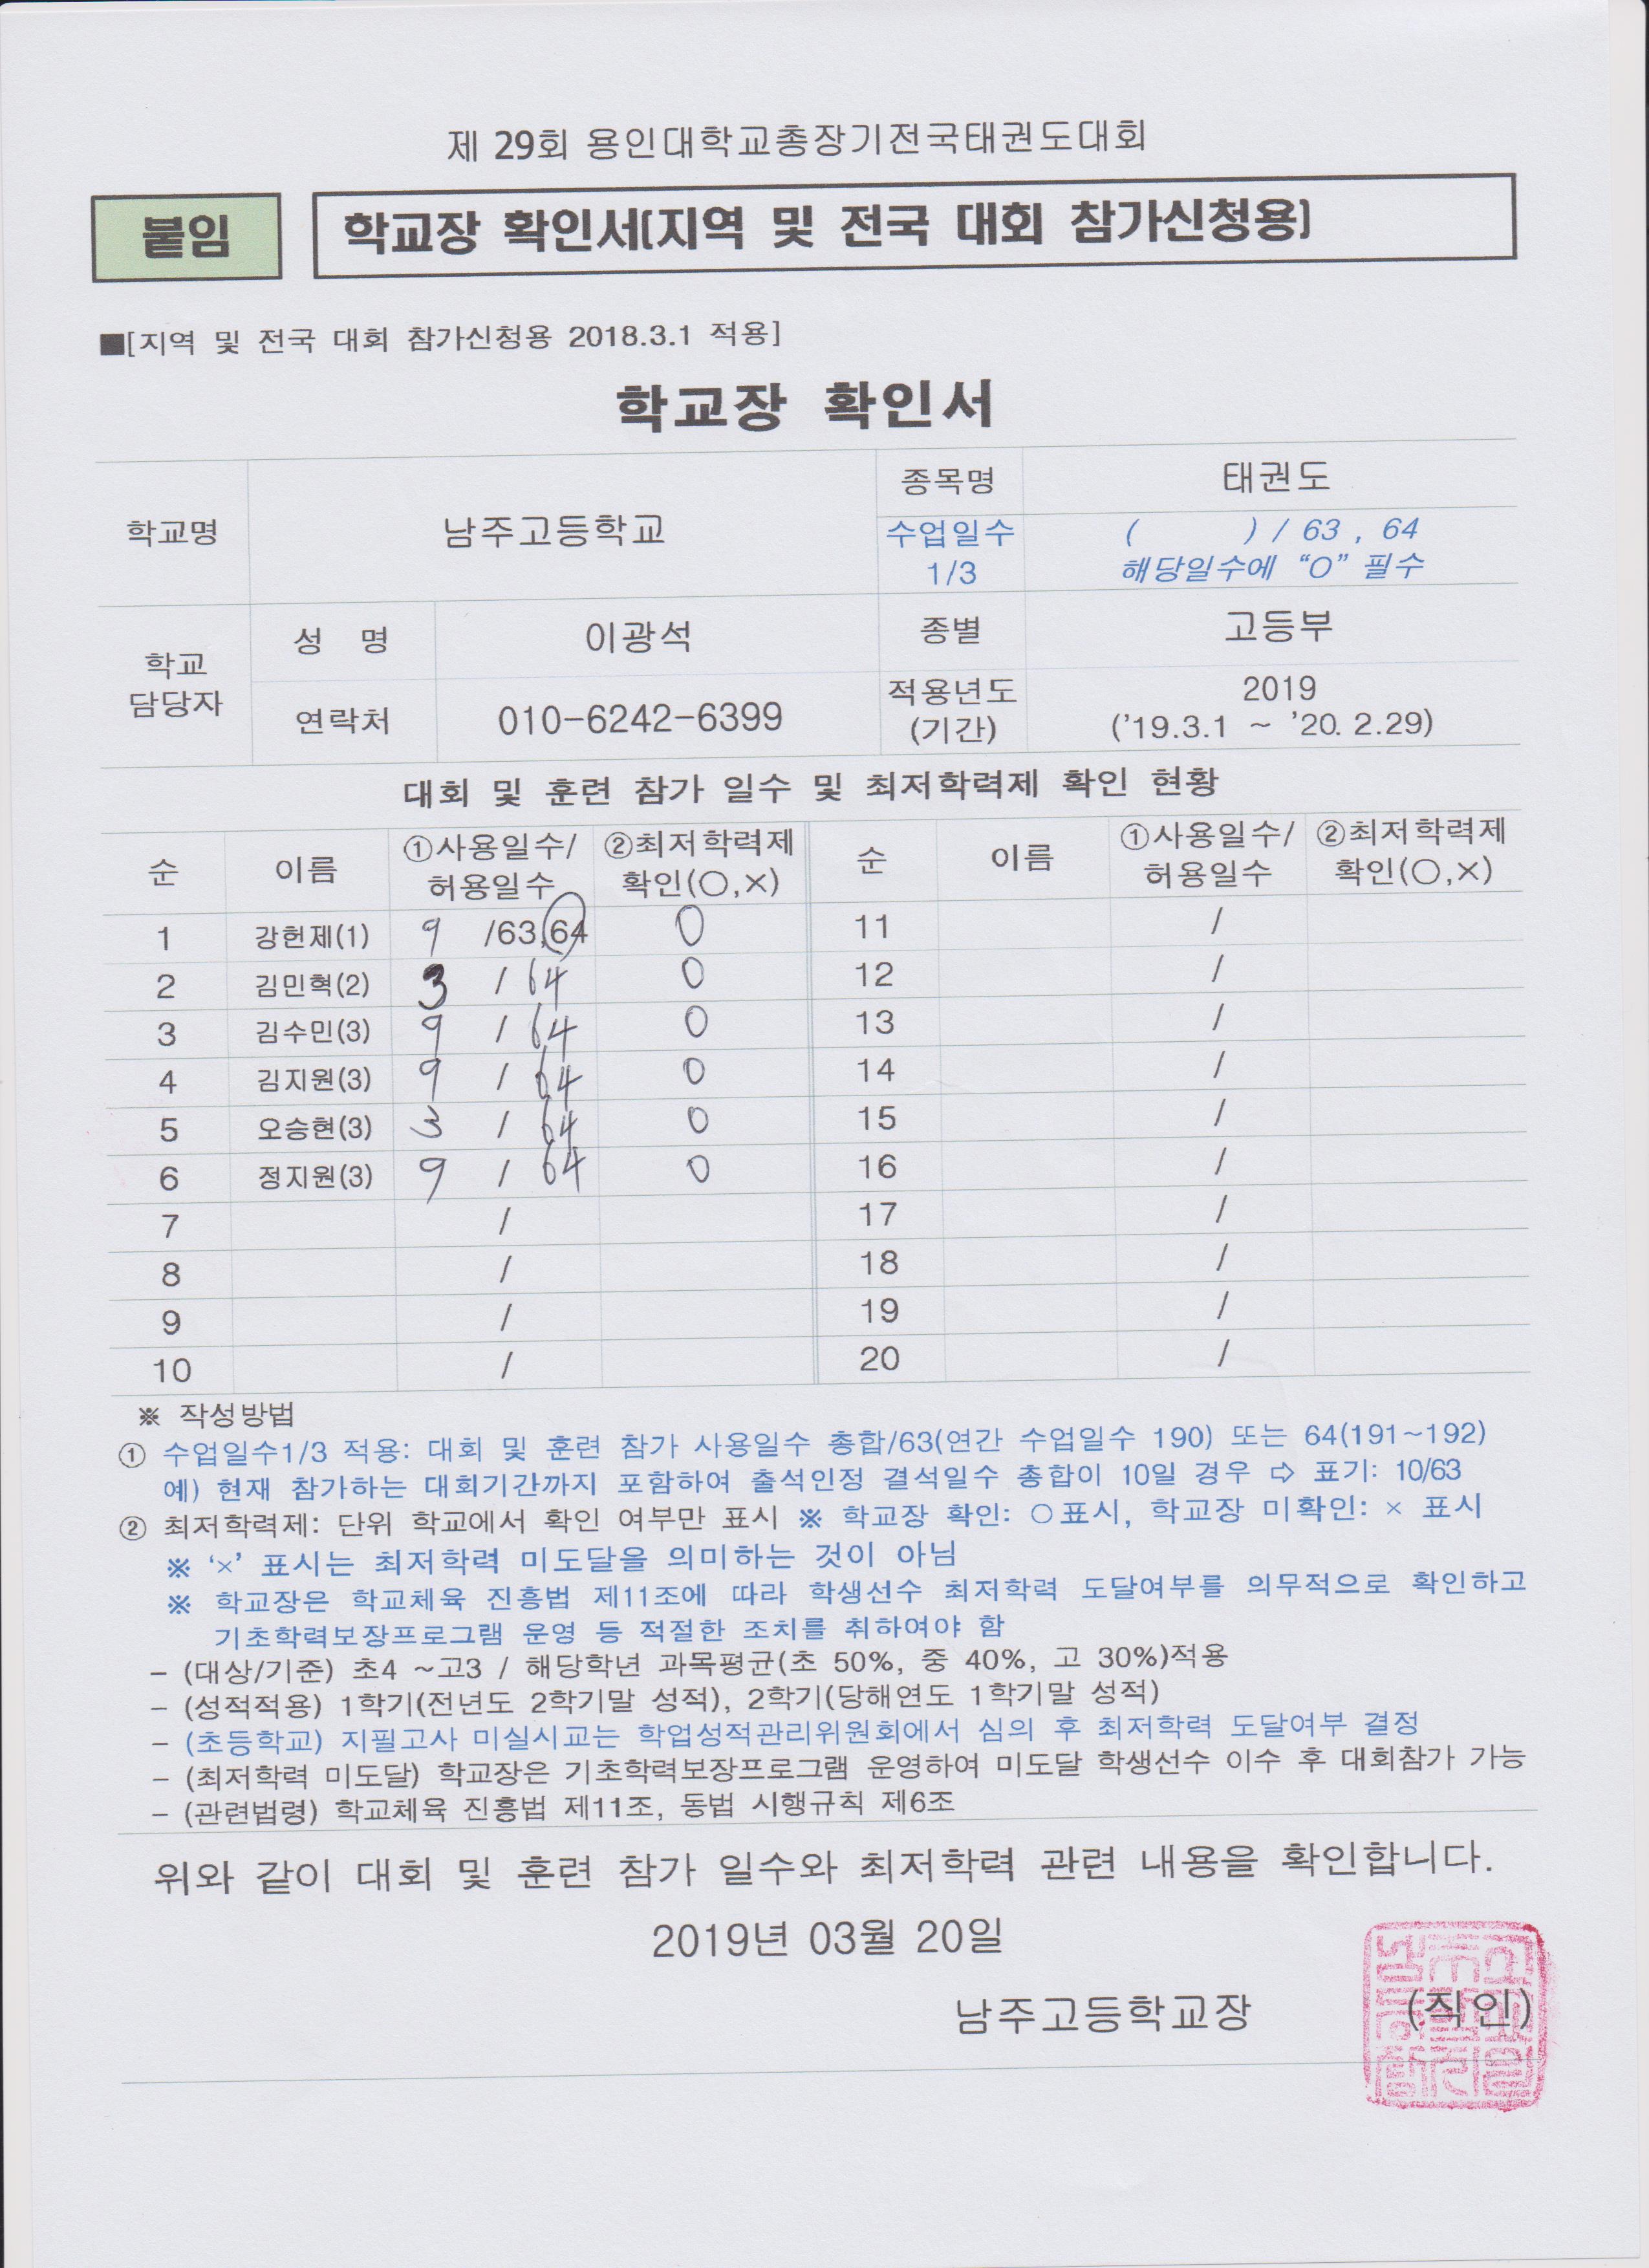 제 29회 용인대학교총장기전국태권도대회
붙임
학교장 확인서(지역 및 전국 대회 참가신청용)
■[지역 및 전국 대회 참가신청용 2018.3.1 적용]
학교장 확인서
학교명 남주고등학교 종목명 태권도
수업일수 1/3 ( ) / 63 , 64
해당일수에 “O” 필수
학교 담당자 성 명 이광석 종별 고등부
연락처 010-6242-6399 적용년도 (기간) 2019
('19.3.1 ~ '20. 2.29)
대회 및 훈련 참가 일수 및 최저학력제 확인 현황
순 이름 ①사용일수/허용일수 ②최저학력제 확인(○,×) 순 이름 ①사용일수/허용일수 ②최저학력제 확인(○,×)
1 강헌제(1) 9 /63,64 0 11 /
2 김민혁(2) 3 / 64 0 12 /
3 김수민(3) 9 / 64 0 13 /
4 김지원(3) 9 / 64 0 14 /
5 오승현(3) 3 / 64 0 15 /
6 정지원(3) 9 / 64 0 16 /
7 / 17 /
8 / 18 /
9 / 19 /
10 / 20 /
※ 작성방법
① 수업일수1/3 적용: 대회 및 훈련 참가 사용일수 총합/63(연간 수업일수 190) 또는 64(191~192)
예) 현재 참가하는 대회기간까지 포함하여 출석인정 결석일수 총합이 10일 경우 ⇨ 표기: 10/63
② 최저학력제: 단위 학교에서 확인 여부만 표시 ※ 학교장 확인: ○표시, 학교장 미확인: × 표시
※ '×' 표시는 최저학력 미도달을 의미하는 것이 아님
※ 학교장은 학교체육 진흥법 제11조에 따라 학생선수 최저학력 도달여부를 의무적으로 확인하고
기초학력보장프로그램 운영 등 적절한 조치를 취하여야 함
- (대상/기준) 초4 ~고3 / 해당학년 과목평균(초 50%, 중 40%, 고 30%)적용
- (성적적용) 1학기(전년도 2학기말 성적), 2학기(당해연도 1학기말 성적)
- (초등학교) 지필고사 미실시교는 학업성적관리위원회에서 심의 후 최저학력 도달여부 결정
- (최저학력 미도달) 학교장은 기초학력보장프로그램 운영하여 미도달 학생선수 이수 후 대회참가 가능
- (관련법령) 학교체육 진흥법 제11조, 동법 시행규칙 제6조
위와 같이 대회 및 훈련 참가 일수와 최저학력 관련 내용을 확인합니다.
2019년 03월 20일
남주고등학교장 (직인)